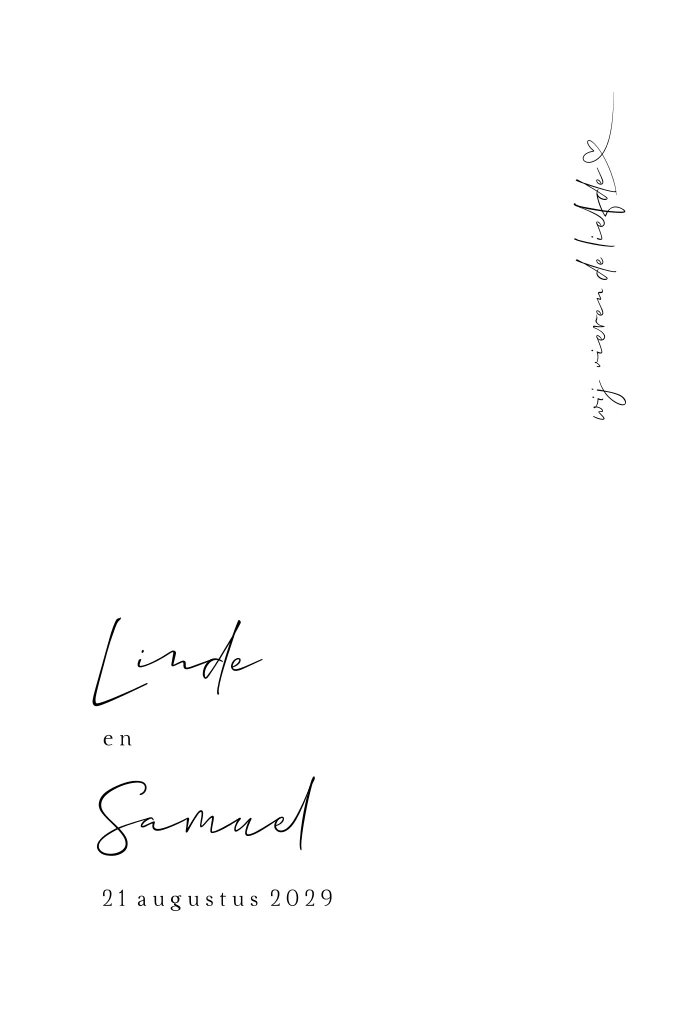 wij vieren de liefde
Linde
en
Samuel
21 augustus 2029